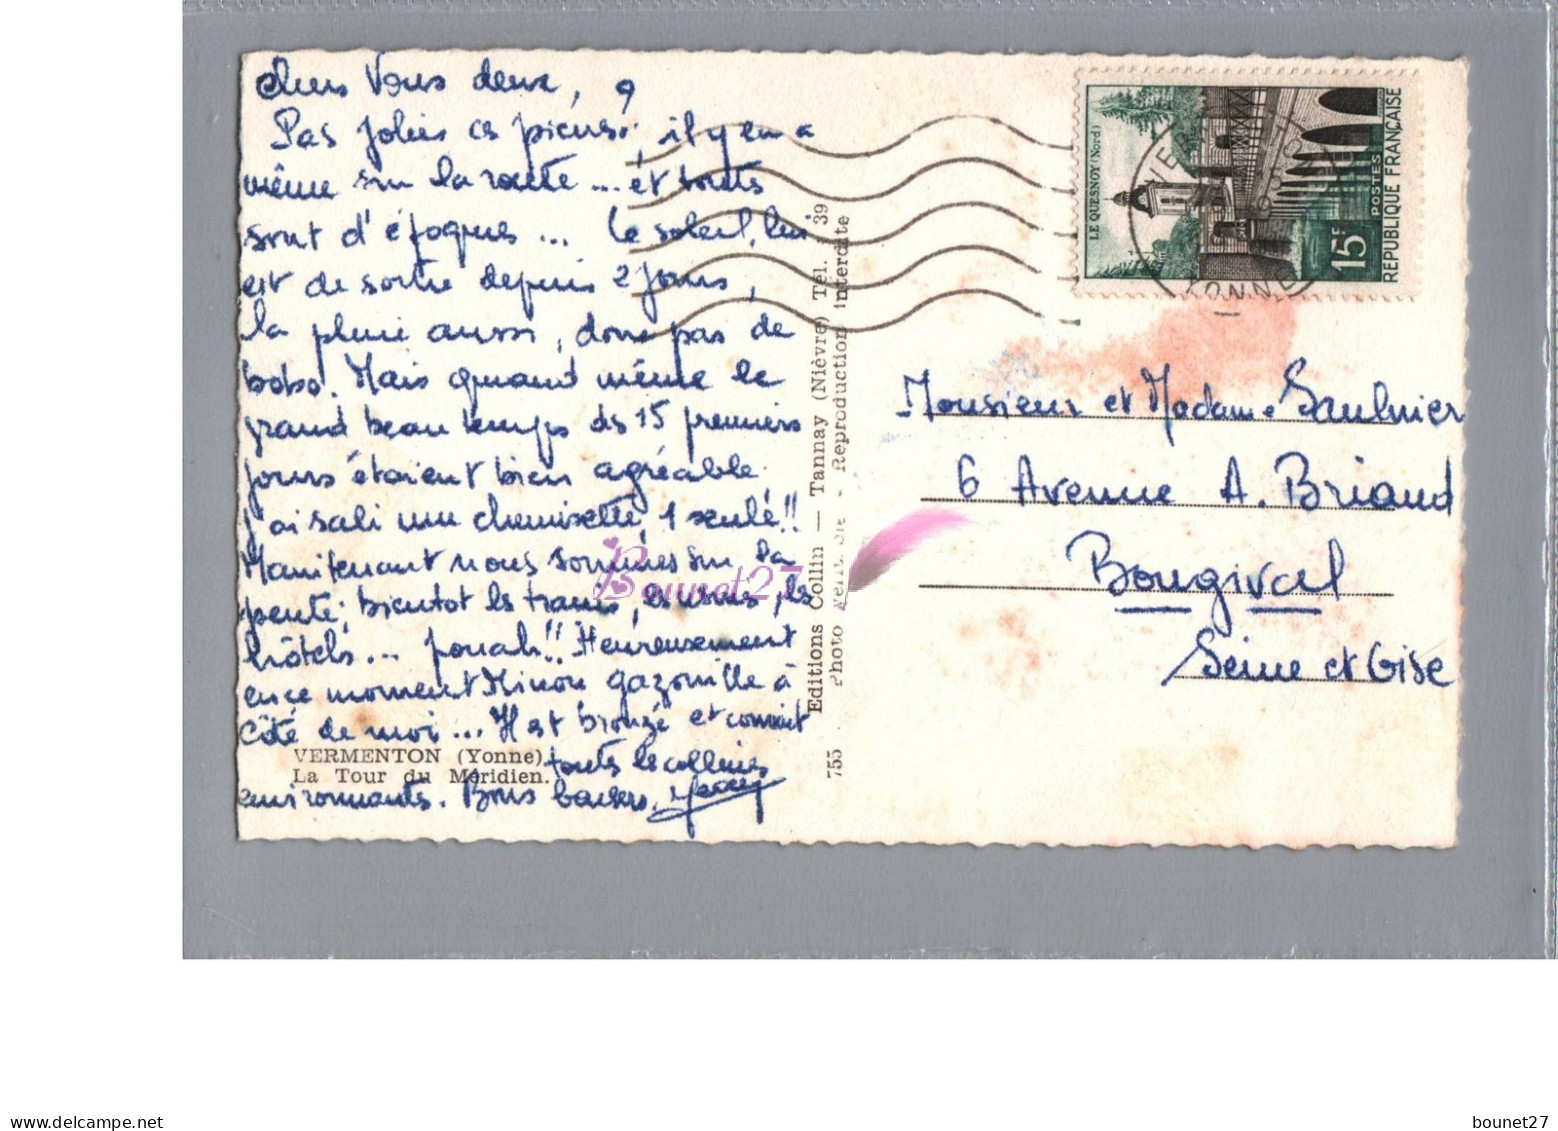 Chers Vous deux,
Pas jolies ces pierres ? il y en a
même sur la route ... et toutes
sont d'époques ... Le soleil, lui
est de sortie depuis 2 jours,
la pluie aussi, donc pas de
bobo. Mais quand même le
grand beau temps ds 15 premiers
jours étaient bien agréable.
J'ai sali une chemisette, 1 seule !!
Maintenant nous sommes sur la
pente; bientôt les trains, les usines, les
hôtels... pouah !! Heureusement
en ce moment Minou gazouille à
côté de moi ... Il est bronzé et connait
toutes les collines
environnantes. Bons baisers.
VERMENTON (Yonne)
La Tour du Méridien.
Editions Collin — Tannay (Nièvre) Tél. 39
755 Photo - Reproduction interdite
LE QUESNOY (Nord)
15F
POSTES
RÉPUBLIQUE FRANÇAISE
YONNE
Monsieur et Madame Saulnier
6 Avenue A. Briand
Bougival
Seine et Oise
Bounet27
bounet27